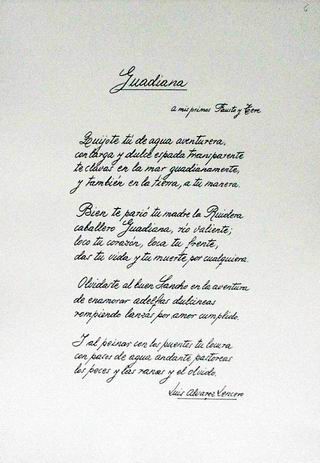 Guadiana
a mis primos Fausto y Tere
Quijote tú de agua aventurera,
con larga y dulce espada transparente
te clavas en la mar guadianamente,
y también en la tierra, a tu manera.
Bien te parió tu madre la Ruidera
caballero Guadiana, río valiente;
loco tu corazón, loca tu frente,
das tu vida y tu muerte por cualquiera.
Olvidaste al buen Sancho en la aventura
de enamorar adelfas dulcineas
rompiendo lanzas por amor cumplido.
Y al peinar con los puentes tu locura
con pasos de agua andante pastoreas
los peces y las ranas y el olvido.
Luis Alvarez Lencero